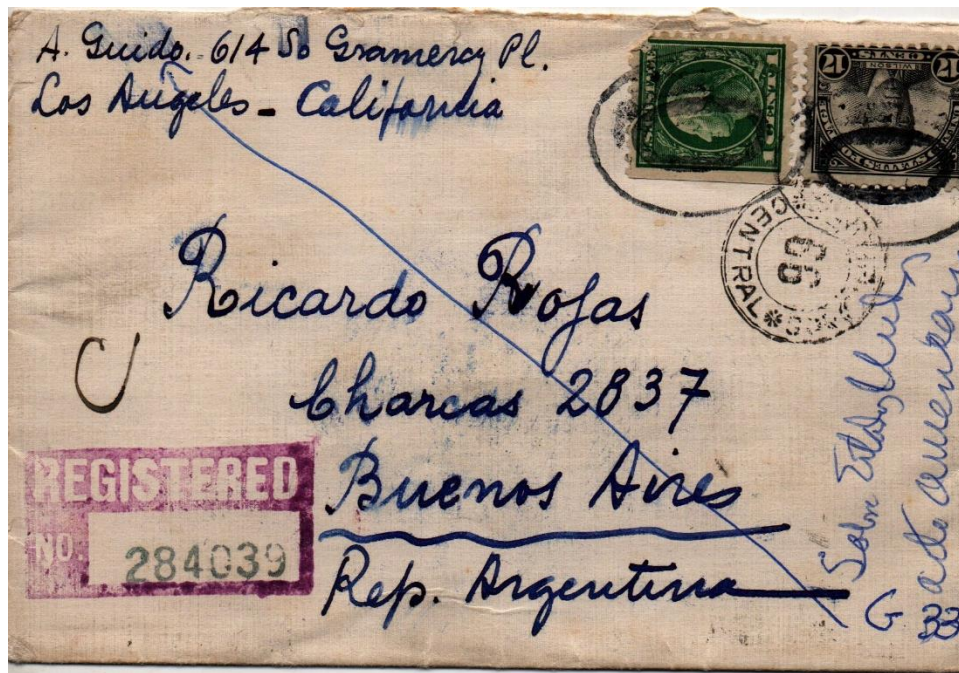 A. Guido. 614 So Gramercy Pl.
Los Angeles - California
U.S. POSTAGE
1 CENTS 1
17 17
CENTS
WILSON
CENTRAL
66
Ricardo Rojas
Charcas 2837
Buenos Aires
Rep. Argentina
C
REGISTERED
NO. 284039
Sobre Estados Unidos
arte americano
G 33